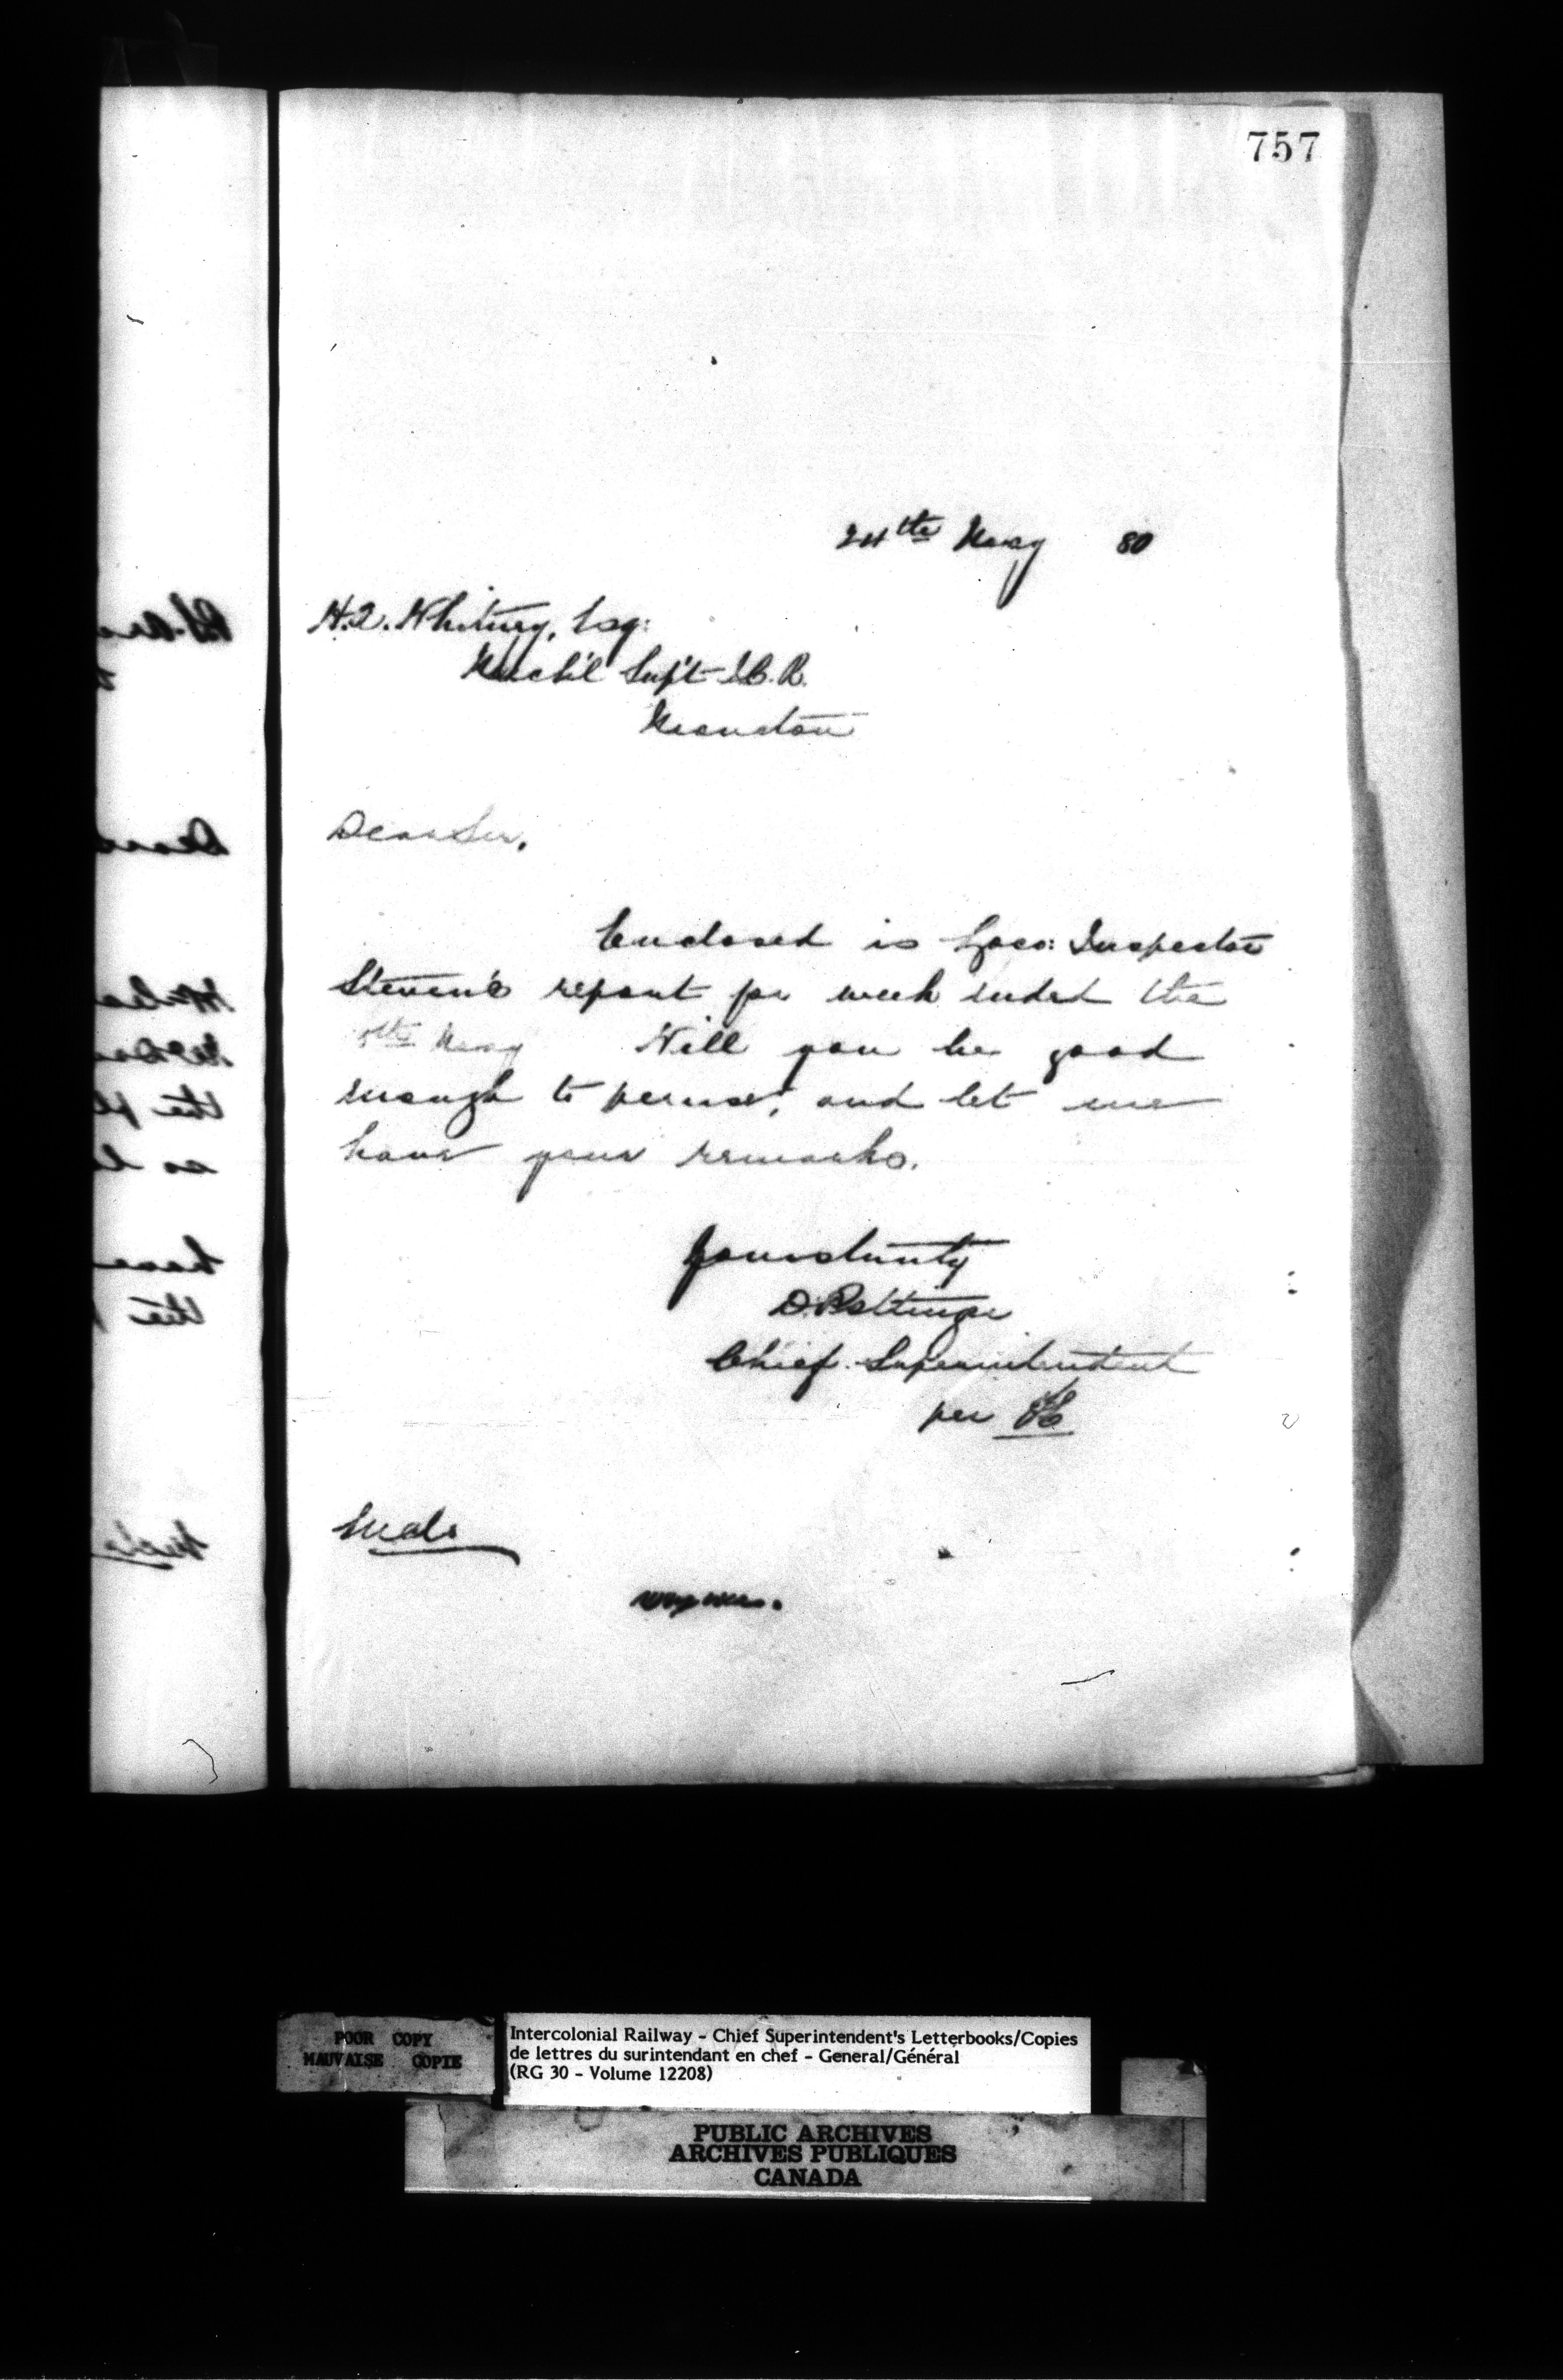 757
24th May 80
H.A. Whitney, Esq:
Mech'l Sup't I.C.R.
Moncton
Dear Sir,
Enclosed is Loco: Inspector
Steven's report for week ended the
May Will you be good
enough to peruse, and let me
have your remarks.
Yours truly
D. Pottinger
Chief Superintendent
per
Encls
POOR COPY
MAUVAISE COPIE
Intercolonial Railway - Chief Superintendent's Letterbooks/Copies
de lettres du surintendant en chef - General/Général
(RG 30 - Volume 12208)
PUBLIC ARCHIVES
ARCHIVES PUBLIQUES
CANADA